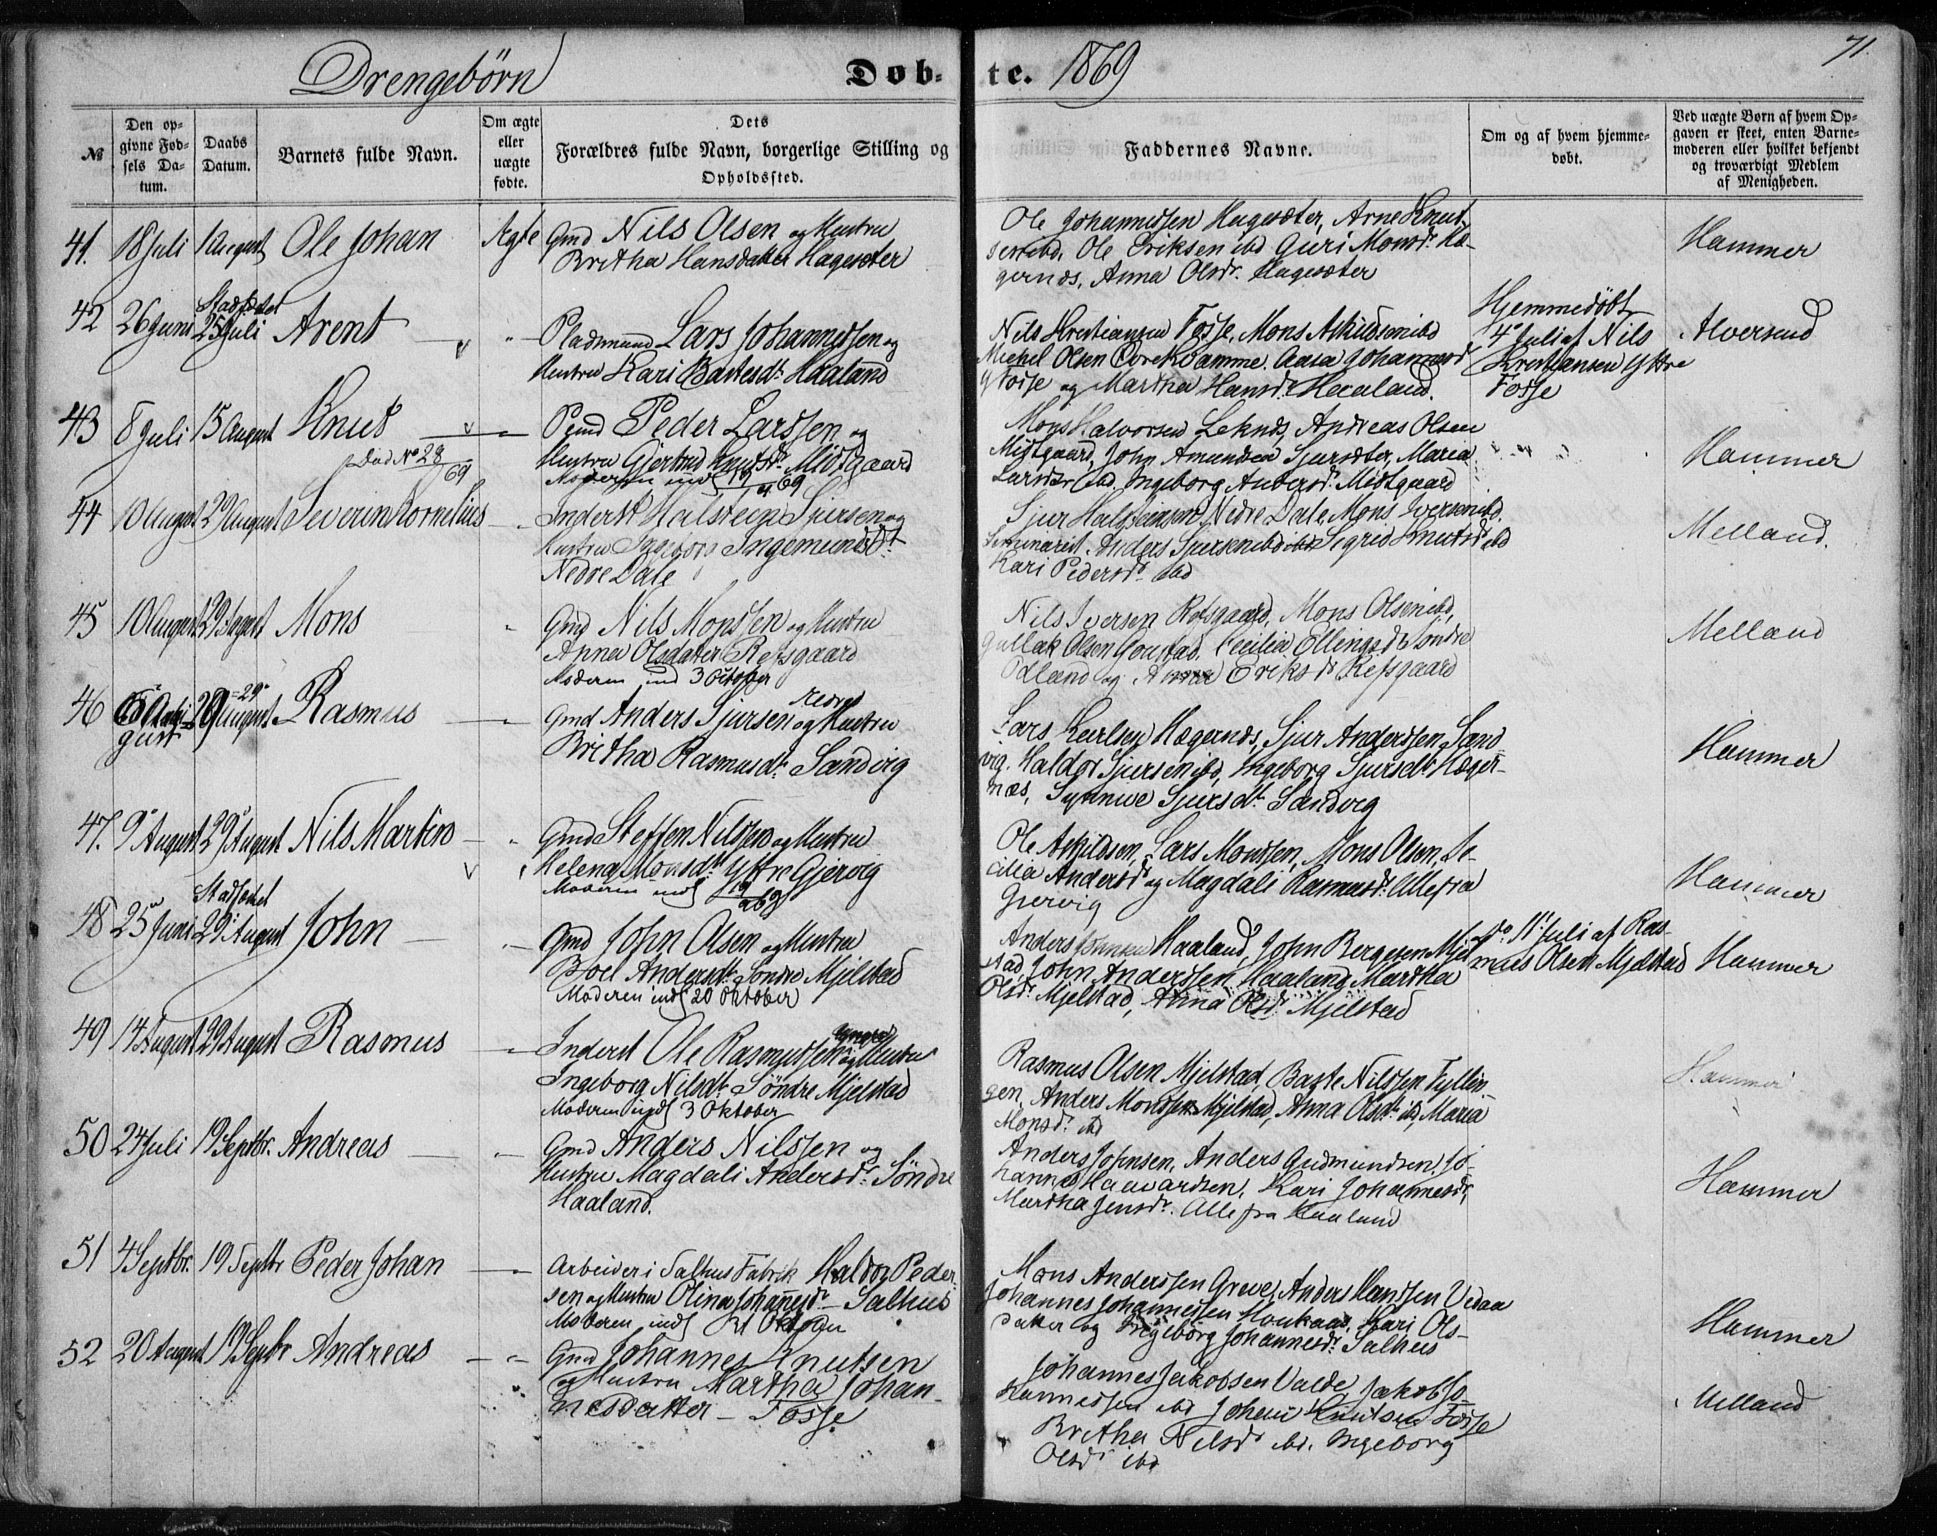 71.
Drengebørn Dob- te. 1869
№
Den op-
givne Fød-
sels Da-
tum.
Daabs
Datum.
Barnets fulde Navn.
Om ægte
eller
uægte
fødte.
Dets
Forældres fulde Navn, borgerlige Stilling og
Opholdssted.
Faddernes Navne.
Om og af hvem hjemme-
døbt.
Ved uægte Børn af hvem Op-
gaven er skeet, enten Barne-
moderen eller hvilket bekjendt
og troværdigt Medlem
af Menigheden.
41. 18 Juli 1 August Ole Johan Ægte
Gmd Nils Olsen og Hustru
Britha Hansdatter Hagesæter
Ole Johannessen Hagesæter, Arne Knut-
sen ibd, Ole Eriksen ibd Guri Monsdr. Hæ-
gernæs, Anna Olsdr. Hagesæter
Hammer
42 26 Juni Stadfæstet 25 Juli Arent
Pladsmand Lars Johannessen og
Hustru Kari Bastesdt. Haaland
Nils Kristiansen Fosse, Mons Askildsen ibd
Michel Olsen Damme. Aasa Johannesd
Y Fosse og Martha Hansd. Haaland.
Hjemmedøbt
4 Juli af Nils
Kristiansen Yttre
Fosse
Alversund
43 8 Juli 15 August Knud
Død No 28
69
Pmd Peder Larssen og
Hustru Gjertrud Knutsdr. Midtgaard
Moderen inds 19 69
Mons Halvorsen Leknes, Andreas Olsen
Midtgaard, John Amundsen Sjursæter, Maria
Larsdr ibd. Ingeborg Andersdr. Midtgaard
Hammer
44 10 August 29 August Severin Kornelius
Inderst Halstein Sjursen og
Hustru Ingeborg Ingemundsdt.
Nedre Dale
Sjur Halsteinsen Nedre Dale, Mons Iversen ibd.
Seminarist Anders Sjursen ibd Sigrid Knutsd ibd
Kari Pedersdr ibd
Melland.
45 10 August 29 August Mons
Gmd Nils Monssen og Hustru
Anna Olsdatter Refsgaard
Moderen ind 3 October
Nils Iversen Refsgaard, Mons Olsen ibd,
Gullak Olsen Cecilia Ellingsdt Søndre
Odland og Anna Eriksdt Refsgaard
Melland
46 gust 29 August Rasmus
Gmd Anders Sjursen og Hustru
Nedre
Britha Rasmusdt. Sandvig
Lars Karlsen Hægernæs, Sjur Anderssen Sand
vig, Haldor Sjursen ibd, Ingeborg Sjursdt. Hæger-
næs, Synnive Sjursdt. Sandvig
Hammer
47. 9 August 29 August Nils Martin
Gmd Steffen Nilssen og Hustru
Helena Monsdt. Yttre Gjervig
Moderen inds
Ole Askildsen, Lars Monssen, Mons Olsen, Se-
cilia Andersdt og Magdali Rasmusdt. Alle fra
Gjervig
Hammer
48 25 Juni Stadfæstet 29 August John
Gmd John Olsen og Hustru
Boel Andersdt. Søndre Mjelstad
Moderen inds 20 Oktober
Anders Haaland, John Bergesen Mjel-
stad, John Anderssen Haaland, Martha
Olsdr. Mjelstad, Anna Olsdr. Mjelstad
do. 11 Juli af Ras-
mus Olsen Mjelstad
Hammer
49 14 August 29 August Rasmus
Inderst Ole Rasmussen yngre og Hustru
Ingeborg Nilsdt. Søndre Mjelstad
Moderen inds 3 Oktober
Rasmus Olsen Mjelstad, Baste Nilssen Fyllin-
gen, Anders Monssen Mjelstad, Anna Olsdt. ib, Maria
Monsd. ibd
Hammer
50 24 Juli 19 Septbr. Andreas
Gmd Anders Nilssen og
Hustru Magdali Andersdr. Søndre
Haaland.
Anders Johnsen, Anders Gudmundsen, Jo-
hannes Haavardsen, Kari Johannesdr.
Martha Jensdr. Alle fra Haaland
Hammer
51 4 Septbr. 19 Septbr Peder Johan
Arbeider i Salhus Fabrik Haldor Peder-
sen og Hustru Olina Johannesdr. Salhus
Moderen inds 31 Oktober
Mons Anderssen Greve, Anders Hanssen Vedaa
Johannes Johannessen Haukaas, Kari Ols-
datter og Ingeborg Johannesdr. Salhus
Hammer
52 20 August 19 Septbr Andreas
Gmd Johannes Knutsen
og Hustru Martha Johan-
nesdatter – Fosse
Johannes Jakobsen Valde, Jakob Jo-
hannessen ibd Johan Knutsen Fosse
Britha Nilsdr ibd. Ingeborg
Olsdr ibd
Melland